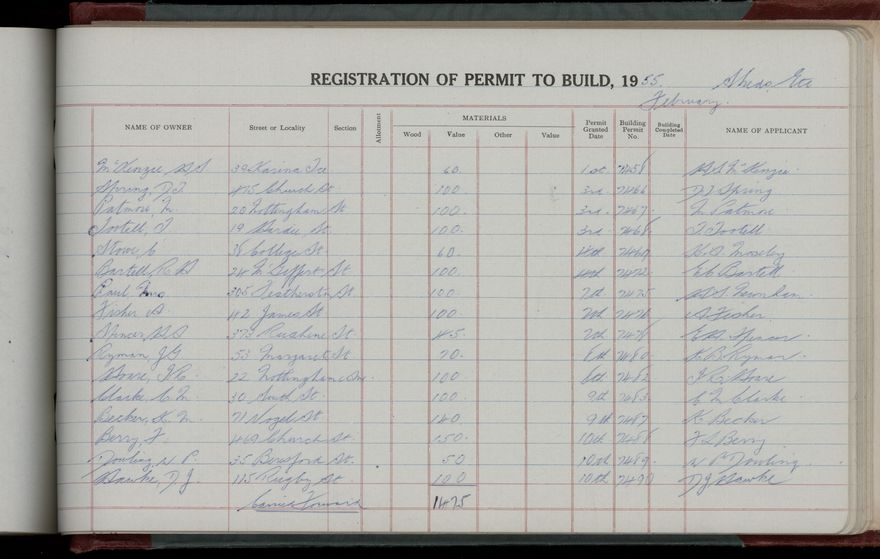 REGISTRATION OF PERMIT TO BUILD, 1955. Sheds, Etc
February.
NAME OF OWNER Street or Locality Section Allotment MATERIALS Wood Value Other Value Permit Granted Date Building Permit No. Building Completed Date NAME OF APPLICANT
McKenzie 39 Karina Tce 60. 1st 7458 McKenzie
Spring, D.J. 475 Church St 100. 3rd. 7466 D J Spring
Patmore, M. 20 Nottingham St 100. 3rd. 7467. M Patmore
Tootell, J 19 St. 100. 3rd. 7468. J Tootell
Stowe, C College St. 60. 4th 7469 Moseby
Bartell, 24 St. 100. 4th 7472. Bartell
Paul, 305 Featherston St. 100. 7th 7475
Fisher, A. 42 James St 100. 7th 7476 A Fisher
Spencer, 373 Ruahine St. 45. 7th 7478 Spencer
Ryman, J.G. 53 Margaret St. 70. 8th 7480 Ryman
22 Nottingham Ave. 100. 8th 7482
Clarke, C. M. 30 South St. 100. 9th 7483. C M Clarke.
Becker, K. M. 71 Vogel St 140. 9th 7487 K Becker
Berry, F. 469 Church St. 150. 10th 7488 F L Berry
Dowling, N. P. 35 Beresford St. 50 10th 7489. N P Dowling.
Hawke, D J. 115 Rugby St 100 10th 7490 D J Hawke
Carried Forward 1475